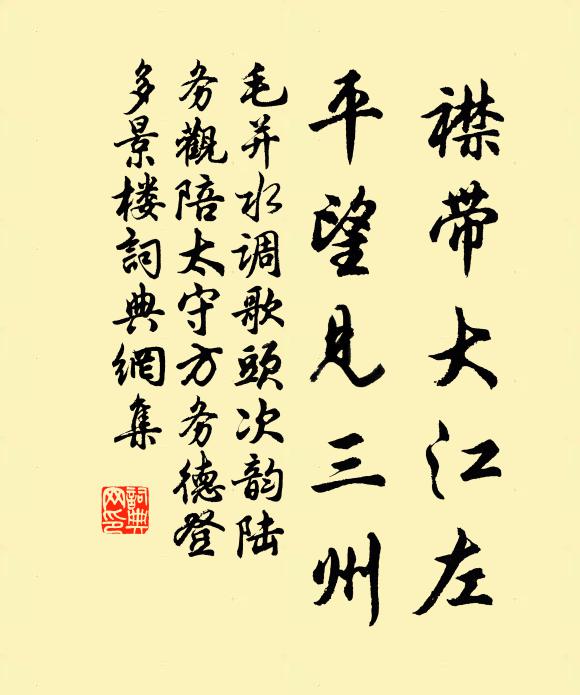 襟带大江左
平望见三州
毛并水调歌頭次韵陆
务觀陪太守方务德登
多景楼詞典網集
詞典网印